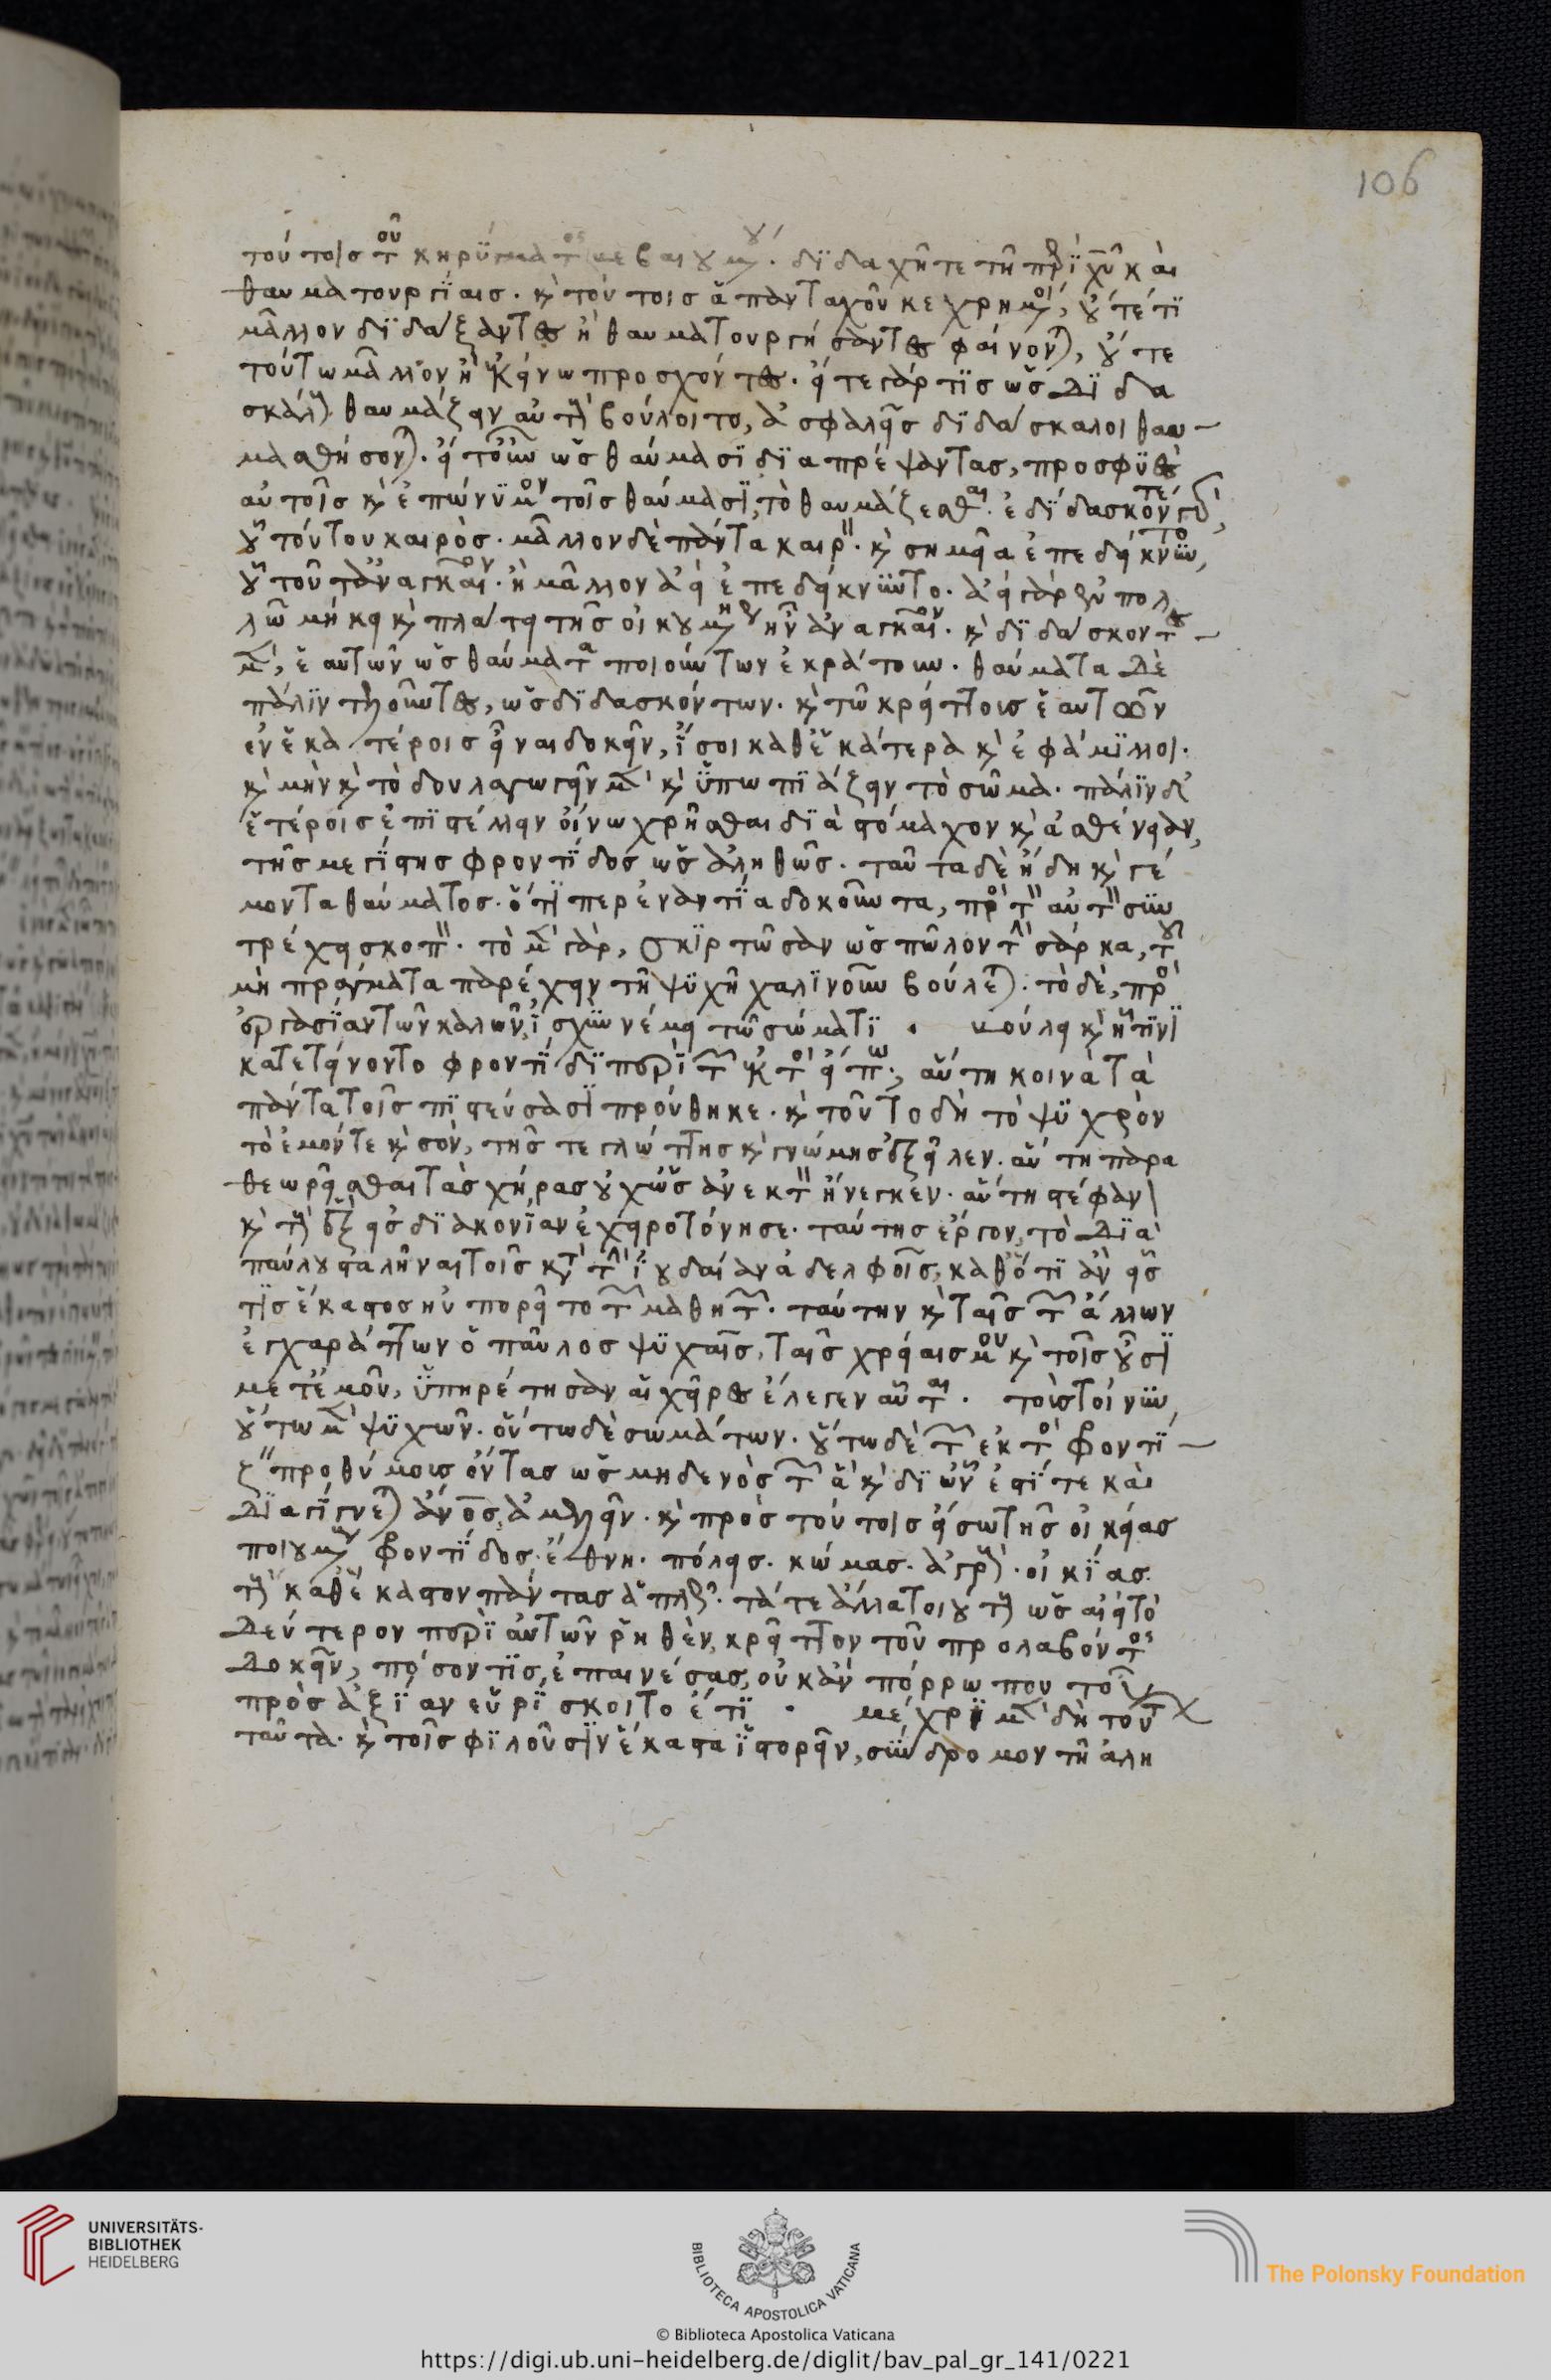 106
τούτοις τοῦ κηρύγματος βεβαιουμένου. διδαχῆ τε τῆ περὶ χῦ καὶ
θαυματουργίαις. καὶ τούτοις ἁπανταχοῦ κεχρημένοι, οὔτέ τι
μᾶλλον διδάξαντες ἢ θαυματουργήσαντες φαίνονται, οὔτε
τούτω μᾶλλον ἢ 'κείνω προσχόντες. εἴτε γάρ τις ὡς διδα
σκάλους θαυμάζειν αὐτοὺς βούλοιτο, ἀσφαλεῖς διδάσκαλοι θαυ
μασθήσονται. εἰ τοίνυν ὡς θαύμασι διαπρέψαντας, προσφυὲς
αὐτοῖς καὶ ἐπώνυμον τοῖς θαύμασι, τὸ θαυμάζεσθαι. ἐδίδασκόν τε γοῦν,
οὗ τούτου καιρὸς. μᾶλλον δὲ πάντα καιρόν. καὶ σημεῖα ἐπεδείκνυντο,
οὗ τοῦτ' ἀναγκαῖον. ἢ μᾶλλον ἀεὶ ἐπεδείκνυντο. ἀεὶ γὰρ ἐν πολ
λῶ μήκει καὶ πλάτει τῆς οἰκουμένης ἦν ἀναγκαῖον. καὶ διδάσκοντες
μὲν, ἑαυτῶν ὡς θαύματα ποιούντων ἐκράτουν. θαύματα δὲ
πάλιν τελοῦντες, ὡς διδασκόντων. καὶ τῶ κρείττοις ἑαυτῶν
ἐν ἑκατέροις εἶναι δοκεῖν, ἴσοι καθ' ἑκάτερα καὶ ἐφάμιλλοι.
καὶ μὴν καὶ τὸ δουλαγωγεῖν μὲν καὶ ὑπωπιάζειν τὸ σῶμα. πάλιν δ'
ἑτέροις ἐπιστέλλειν οἴνω χρῆσθαι διὰ στόμαχον καὶ ἀσθένειαν,
τῆς μεγίστης φροντίδος ὡς ἀληθῶς. ταῦτα δὲ ἤδη καὶ γέ
μοντα θαύματος. ὅτιπερ ἐναντία δοκοῦντα, πρὸς τὸν αὐτὸν συν
τρέχει σκοπόν. τὸ μὲν γὰρ, σκιρτῶσαν ὡς πῶλον τὴν σάρκα, τοῦ
μὴ πράγματα παρέχειν τῆ ψυχῆ χαλινοῦν βούλεται. τὸ δὲ, πρὸς
ἐργασίαν τῶν καλῶν, ἰσχὺν νέμει τῶ σώματι. βούλει καὶ ἥτινι
κατετείνοντο φροντίδι περὶ τῶν ἐκτὸς εἴπω; αὕτη κοινὰ τὰ
πάντα τοῖς πιστεύσασι προύθηκε. καὶ τοῦτο δὴ τὸ ψυχρὸν
τὸ ἐμόν τε καὶ σὸν, τῆς τε γλώττης καὶ γνώμης ἐξεῖλεν. αὕτη παρα
θεωρεῖσθαι τὰς χήρας οὐχ ὡς ἀνεκτὸν ἤνεγκεν. αὕτη στέφανον
καὶ τοὺς ἓξ εἰς διακονίαν ἐχειροτόνησε. ταύτης ἔργον, τὸ διὰ
παύλου σταλῆναι τοῖς κατὰ τὴν ἰουδαίαν ἀδελφοῖς, καθότι ἂν εἷς
τις ἕκαστος ηὐπορεῖτο τῶν μαθητῶν. ταύτην καὶ ταῖς τῶν ἄλλων
ἐγχαράττων ὁ παῦλος ψυχαῖς, ταῖς χρείαις μου καὶ τοῖς οὖσι
μετ' ἐμοῦ, ὑπηρέτησαν αἱ χεῖρες ἔλεγεν αὗται. τοὺς τοίνυν,
οὕτω μὲν ψυχῶν. οὕτω δὲ σωμάτων. οὕτω δὲ τῶν ἐκτὸς φροντί
ζειν προθύμοις ὄντας ὡς μηδενὸς τῶν ἃ καὶ δι' ὧν ἐστί τε καὶ
διαγίγνεται ἄνος, ἀμελεῖν. καὶ πρὸς τούτοις εἴσω τῆς οἰκείας
ποιουμένους φροντίδος. ἔθνη. πόλεις. κώμας. ἀγρούς. οἰκίας.
τοὺς καθ' ἕκαστον πάντας ἁπλῶς. τά τε ἄλλα τοιούτους ὡς αἰεὶ τὸ
δεύτερον περὶ αὐτῶν ῥηθὲν, κρεῖττον τοῦ προλαβόντος
δοκεῖν, πόσον τις ἐπαινέσας, οὐκ ἂν πόρρω που τοῦ
πρὸς ἀξίαν εὑρίσκοιτο ἔτι. μέχρι μὲν δὴ τούτου
ταῦτα. καὶ τοῖς φιλοῦσιν ἕκαστα ἱστορεῖν, σύνδρομον τῆ ἀλη
UNIVERSITÄTS-
BIBLIOTHEK
HEIDELBERG
BIBLIOTECA APOSTOLICA VATICANA
© Biblioteca Apostolica Vaticana
The Polonsky Foundation
https://digi.ub.uni-heidelberg.de/diglit/bav_pal_gr_141/0221